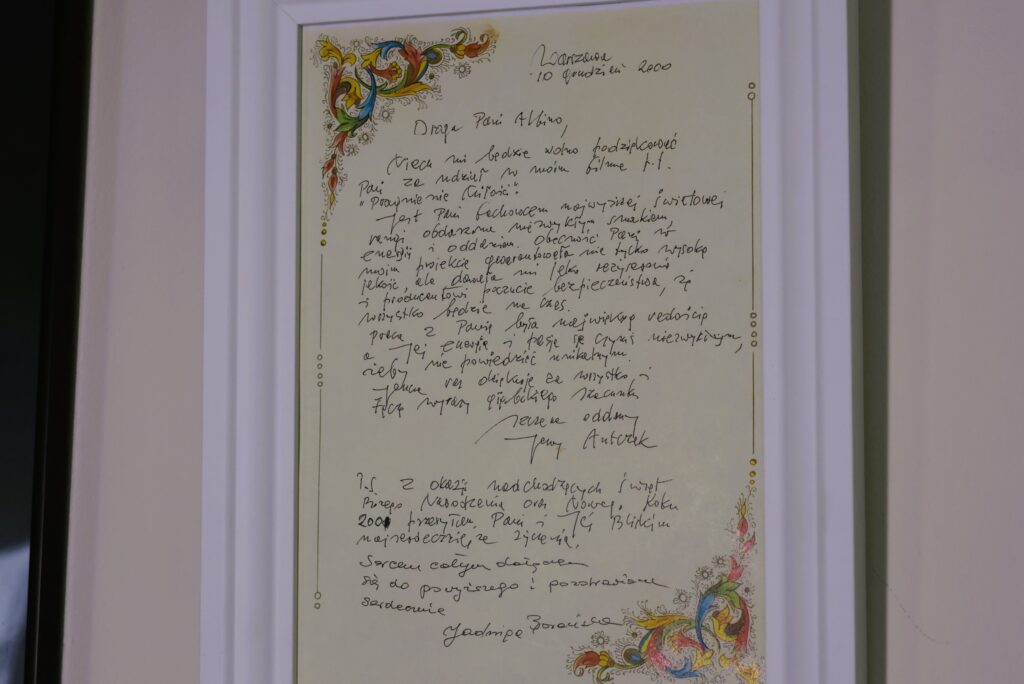 Warszawa
10 grudzień 2000
Droga Pani Albino,
Niech mi będzie wolno podziękować
Pani za udział w moim filmie p.t.
"Pragnienie Miłości".
Jest Pani fachowcem najwyższej światowej
rangi obdarzona niezwykłym smakiem,
energią i oddaniem. Obecność Pani w
moim projekcie gwarantowała nie tylko wysoką
jakość, ale dawała mi jako reżyserowi
i producentowi poczucie bezpieczeństwa, że
wszystko będzie na czas.
Praca z Panią była największą radością
a Jej energia i pasja są czymś niezwykłym,
żeby nie powiedzieć unikalnym.
Jeszcze raz dziękuję za wszystko i
łączę wyrazy głębokiego szacunku
szczerze oddany
Jerzy Antczak
P.S. Z okazji nadchodzących Świąt
Bożego Narodzenia oraz Nowego Roku
2001 przesyłam Pani i Jej Bliskim
najserdeczniejsze życzenia.
Sercem całym dołączam
się do powyższego i pozdrawiam
serdecznie
Jadwiga Barańska